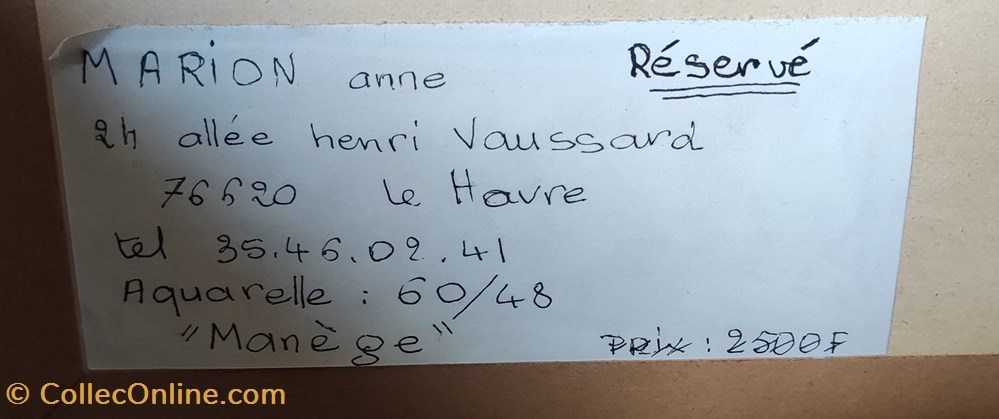 MARION anne Réservé
24 allée henri Vaussard
76620 le Havre
tel 35.46.02.41
Aquarelle : 60/48
"Manège" PRIX : 2500F
© CollecOnline.com